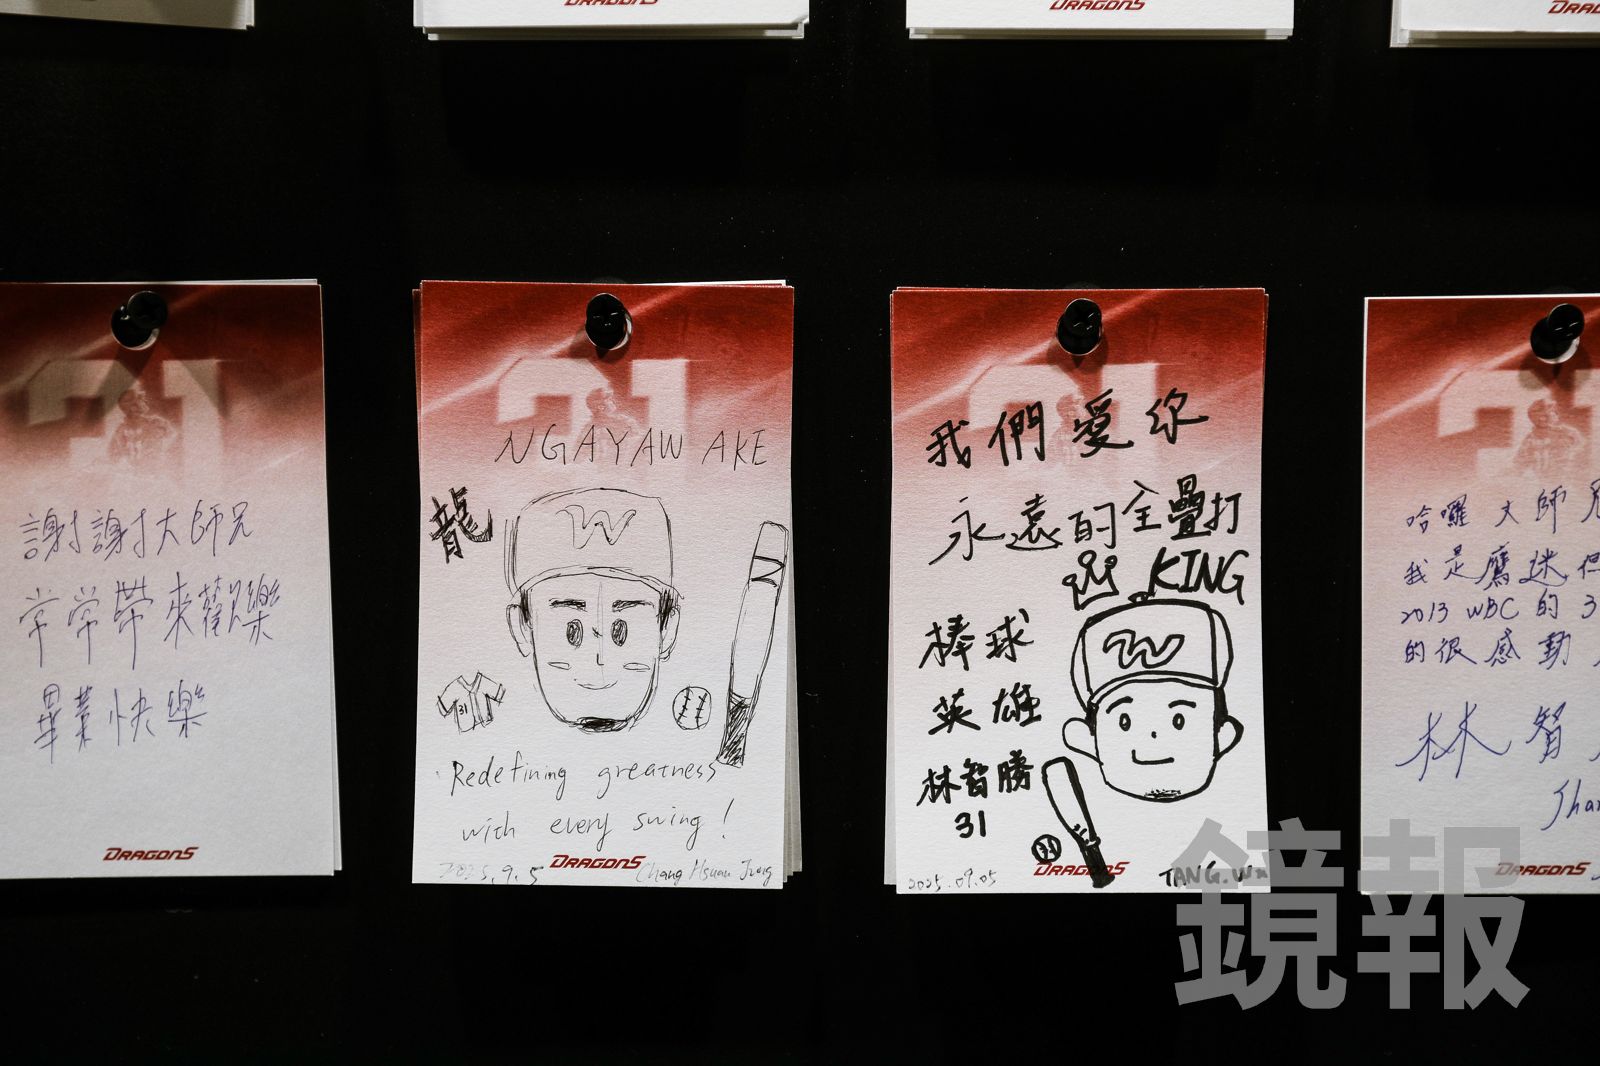 DRAGONS
DRAGONS
DRAGONS
31
謝謝大師兄
常常帶來歡樂
畢業快樂
DRAGONS
31
NGAYAW AKE
龍
W
31
Redefining greatness
with every swing!
2025.9.5
DRAGONS
Chang Hsuan Jung
31
我們愛你
永遠的全壘打
KING
W
棒球
英雄
林智勝
31
31
DRAGONS
2025.09.05
TANG.Wu
哈囉大師兄
我是鷹迷但
2013 WBC的3
的很感動
林智
DRAGONS
鏡報